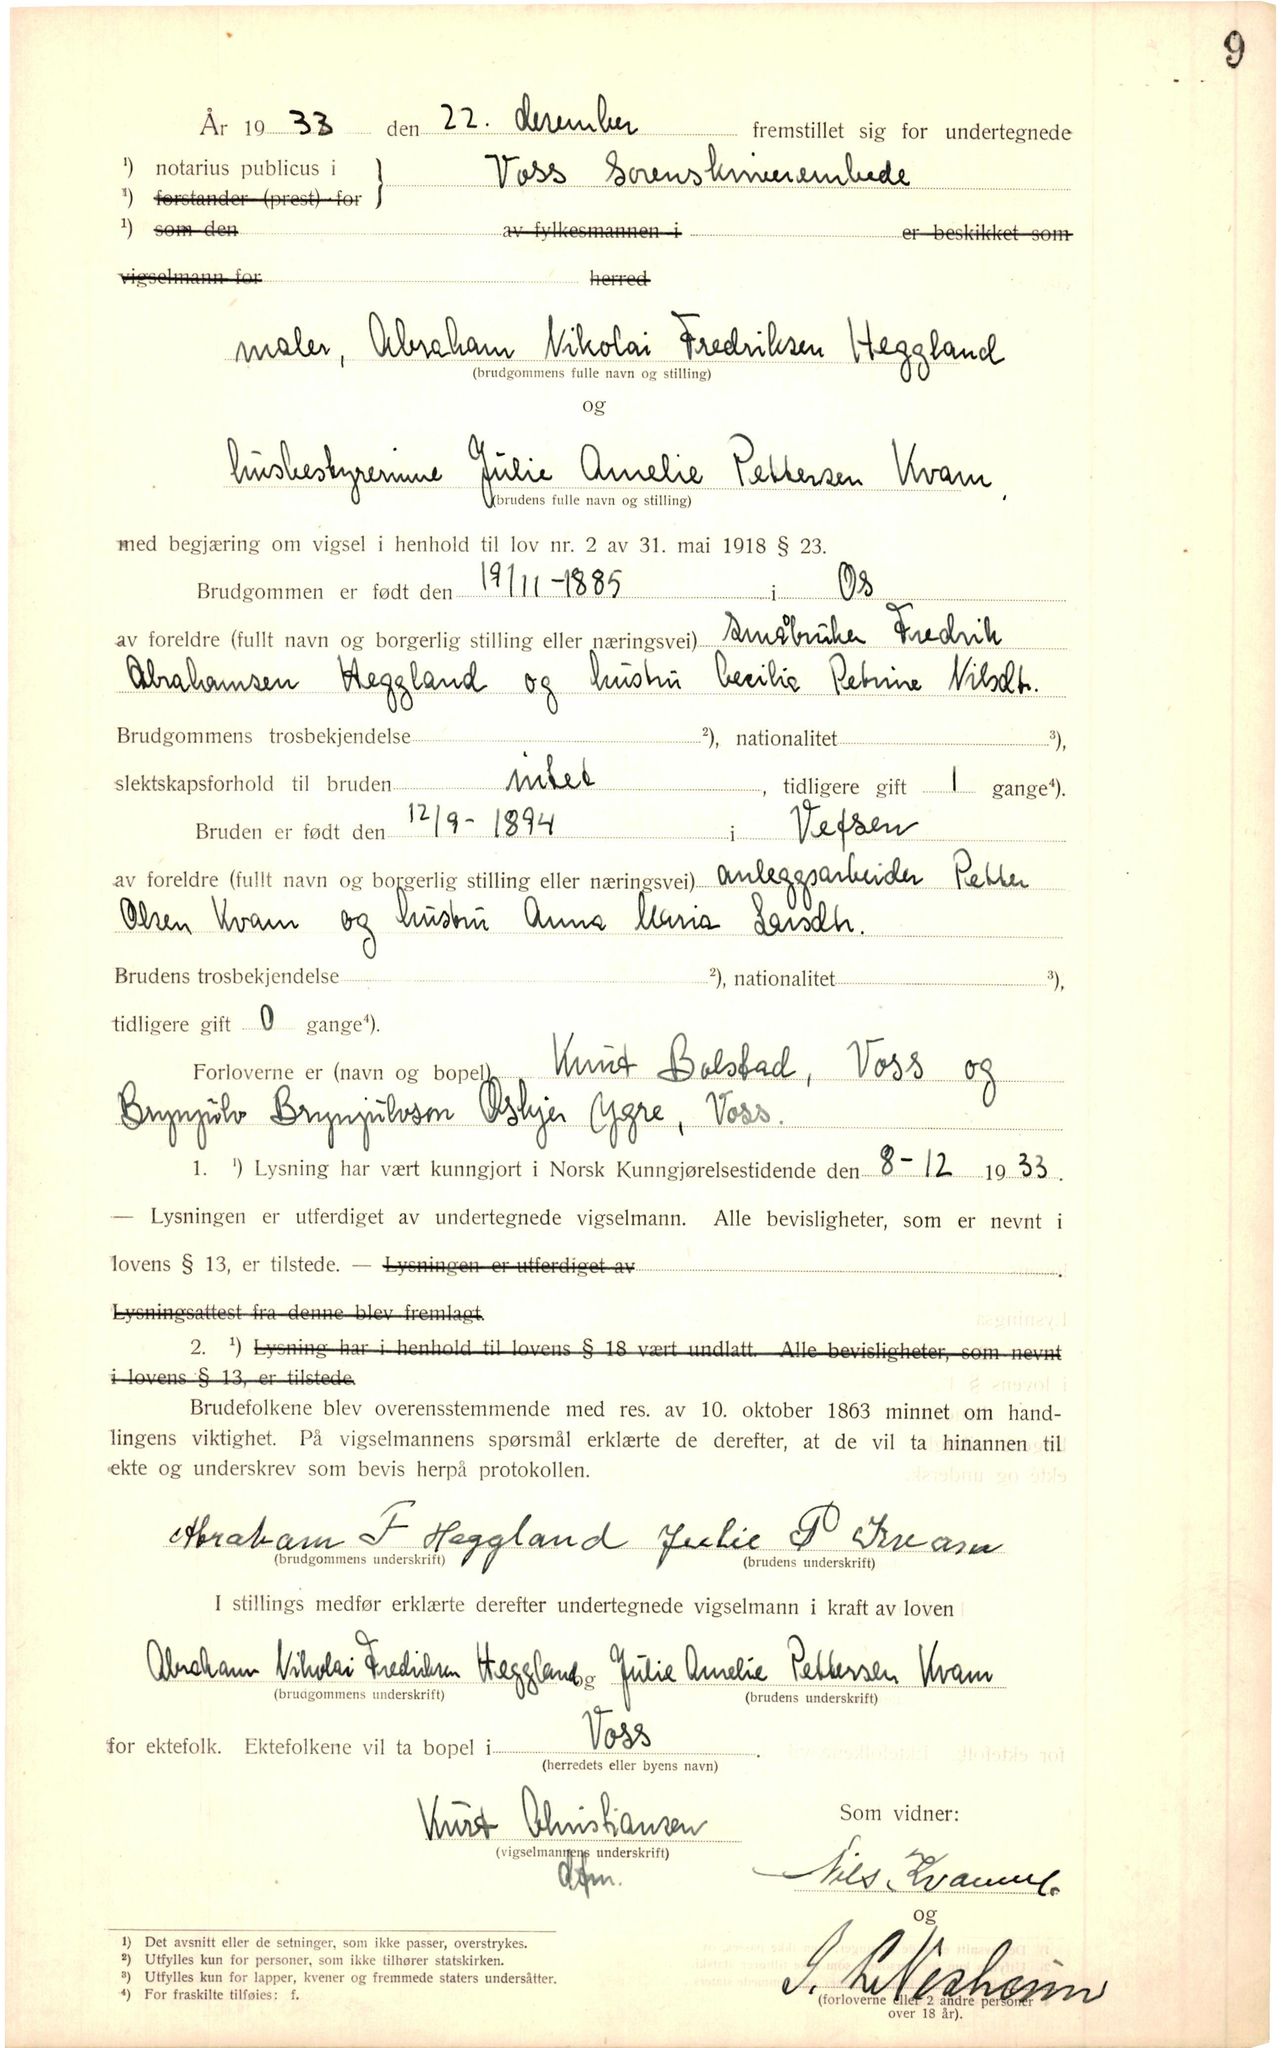 9
År 1933 den 22. desember fremstillet sig for undertegnede
1) notarius publicus i } Voss Sorenskriverembede
1) forstander (prest) for
1) som den av fylkesmannen i er beskikket som
vigselmann for herred
maler, Abraham Nikolai Fredriksen Heggland
(brudgommens fulle navn og stilling)
og
husbestyrerinne Julie Amelie Pettersen Kvam,
(brudens fulle navn og stilling)
med begjæring om vigsel i henhold til lov nr. 2 av 31. mai 1918 § 23.
Brudgommen er født den 19/11-1885 i Os
av foreldre (fullt navn og borgerlig stilling eller næringsvei) småbruker Fredrik
Abrahamsen Heggland og hustru Cecilie Petrine Nilsdtr.
Brudgommens trosbekjendelse 2), nationalitet 3),
slektskapsforhold til bruden intet, tidligere gift 1 gange4).
Bruden er født den 12/9-1894 i Vefsen
av foreldre (fullt navn og borgerlig stilling eller næringsvei) anleggsarbeider Petter
Olsen Kvam og hustru Anna Maria Larsdtr.
Brudens trosbekjendelse 2), nationalitet 3),
tidligere gift 0 gange4).
Forloverne er (navn og bopel) Knut Bolstad, Voss og
Brynjulv Brynjulvson Ygre, Voss.
1. 1) Lysning har vært kunngjort i Norsk Kunngjørelsestidende den 8-12 1933.
— Lysningen er utferdiget av undertegnede vigselmann. Alle bevisligheter, som er nevnt i
lovens § 13, er tilstede. — Lysningen er utferdiget av
Lysningsattest fra denne blev fremlagt.
2. 1) Lysning har i henhold til lovens § 18 vært undlatt. Alle bevisligheter, som nevnt
i lovens § 13, er tilstede.
Brudefolkene blev overensstemmende med res. av 10. oktober 1863 minnet om hand-
lingens viktighet. På vigselmannens spørsmål erklærte de derefter, at de vil ta hinannen til
ekte og underskrev som bevis herpå protokollen.
Abraham F Heggland Julie P Kvam
(brudgommens underskrift) (brudens underskrift)
I stillings medfør erklærte derefter undertegnede vigselmann i kraft av loven
Abraham Nikolai Fredriksen Heggland og Julie Amelie Pettersen Kvam
(brudgommens underskrift) (brudens underskrift)
for ektefolk. Ektefolkene vil ta bopel i Voss.
(herredets eller byens navn)
Knut Christiansen
(vigselmannens underskrift)
dfm.
Som vidner:
Nils Kvamme
og
(forloverne eller 2 andre personer
over 18 år).
1) Det avsnitt eller de setninger, som ikke passer, overstrykes.
2) Utfylles kun for personer, som ikke tilhører statskirken.
3) Utfylles kun for lapper, kvener og fremmede staters undersåtter.
4) For fraskilte tilføies: f.